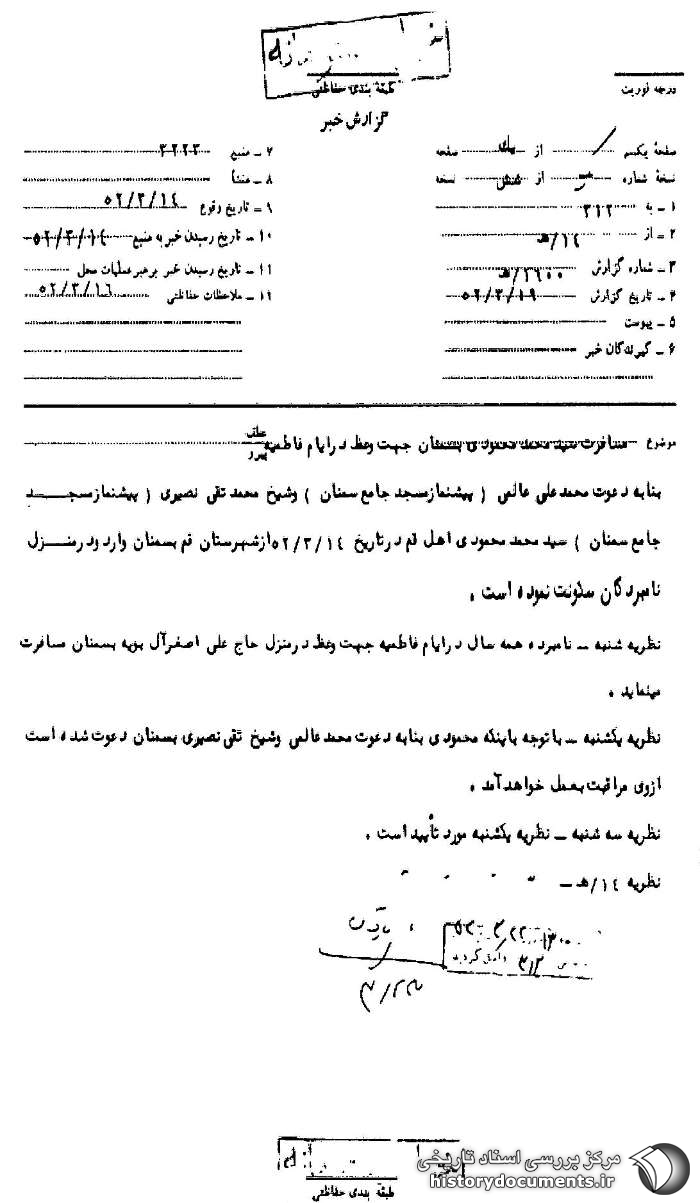 درجه فوریت
طبقه بندی حفاظتی
گزارش خبر
صفحهٔ یکم از یک صفحه
نسخهٔ شماره از شش نسخه
۱ ـ به ۳۱۲
۲ ـ از ۱۴/هـ
۳ ـ شماره گزارش
۴ ـ تاریخ گزارش ۵۲/۳/۱۹
۵ ـ پیوست
۶ ـ گیرندگان خبر
۷ ـ منبع
۸ ـ منشأ
۹ ـ تاریخ وقوع ۵۲/۳/۱۴
۱۰ ـ تاریخ رسیدن خبر به منبع ۵۲/۳/۱۴
۱۱ ـ تاریخ رسیدن خبر برهبر عملیات محل
۱۲ ـ ملاحظات حفاظتی ۵۲/۳/۱۶
موضوع مسافرت سید محمد محمودی بسمنان جهت وعظ در ایام فاطمیه عطف پیرو
بنا به دعوت محمد علی عالمی ( پیشنماز مسجد جامع سمنان ) و شیخ محمد تقی نصیری ( پیشنماز مسجد
جامع سمنان ) سید محمد محمودی اهل قم در تاریخ ۵۲/۳/۱۴ از شهرستان قم بسمنان وارد و در منزل
نامبردگان سکونت نموده است .
نظریه شنبه ـ نامبرده همه سال در ایام فاطمیه جهت وعظ در منزل حاج علی اصغر آل بویه بسمنان مسافرت
مینماید .
نظریه یکشنبه ـ با توجه باینکه محمودی بنا به دعوت محمد عالمی و شیخ تقی نصیری بسمنان دعوت شده است
از وی مراقبت بعمل خواهد آمد .
نظریه سه شنبه ـ نظریه یکشنبه مورد تأیید است .
نظریه ۱۴/هـ ـ
۳۱۲ واصل گردید
۳/۲۳
طبقه بندی حفاظتی
مرکز بررسی اسناد تاریخی
historydocuments.ir